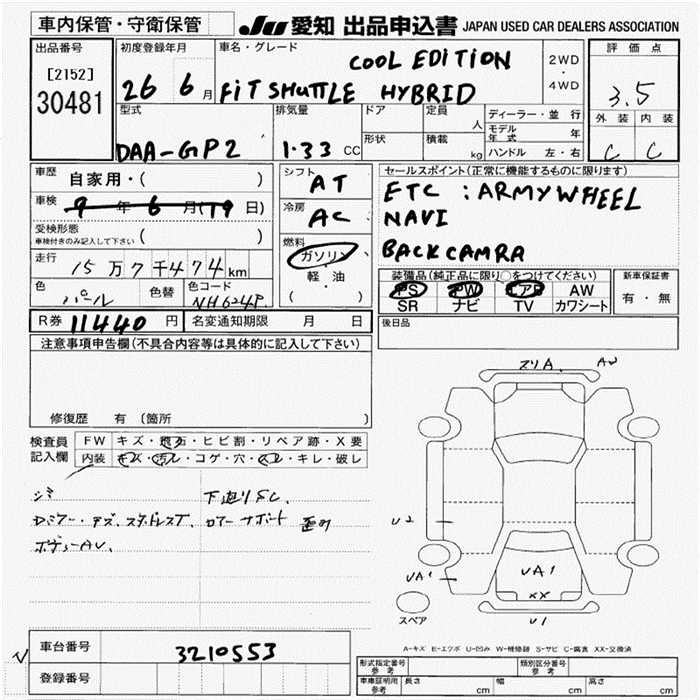 車内保管・守衛保管
JU 愛知 出品申込書 JAPAN USED CAR DEALERS ASSOCIATION
出品番号
[2152]
30481
初度登録年月
26 6 月
車名・グレード
COOL EDITION
FiT SHUTTLE HYBRID
2WD
・
4WD
評価点
3.5
外装 内装
C C
型式
DAA-GP2
排気量
1.33 CC
ドア
形状
定員
人
積載
kg
ディーラー・並行
モデル年式 年
ハンドル 左・右
車歴 自家用・( )
車検 9 年 6 月(19 日)
受検形態
車検付きのみ記入して下さい ( )
走行 15万7千474km
色 パール
色替
色コード NH624P
シフト AT
冷房 AC
燃料
ガソリン
軽・油
( )
セールスポイント(正常に機能するものに限ります)
ETC : ARMYWHEEL
NAVI
BACK CAMRA
装備品(純正品に限り○をつけてください)
PS PW エアB AW
SR ナビ TV カワシート
新車保証書
有・無
後日品
R券 11440 円
名変通知期限 月 日
注意事項申告欄(不具合内容等は具体的に記入して下さい)
修復歴 有 (箇所
検査員記入欄
FW キズ・飛石・ヒビ割・リペア跡・X要
内装 キズ・汚レ・コゲ・穴・スレ・キレ・破レ
シミ
下廻りSC.
ロアーサポート 歪み
ボディーAU.
スリA AU
U2
UA1
UA1
XX
U1
スペア
A-キズ E-エクボ U-凹み W-補修跡 S-サビ C-腐食 XX-交換済
車台番号 3210553
登録番号
形式指定番号
参考
類別区分番号
参考
車庫証明用
参考
長さ cm
幅 cm
高さ cm